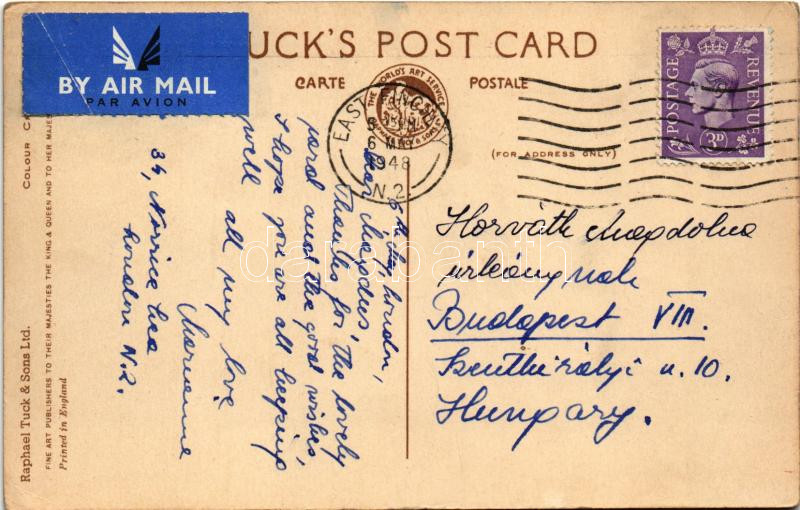 BY AIR MAIL
PAR AVION
TUCK'S POST CARD
CARTE POSTALE
THE WORLD'S ART SERVICE
(FOR ADDRESS ONLY)
EAST FINCHLEY
6 MAY
1948
N.2.
POSTAGE REVENUE
3D
6th May, London,
Dear Magdus,
Thanks for the lovely
parcel and the good wishes,
I hope you are all keeping
well
all my love
Marianne
34, Norrice Lea
London N.2.
Horváth Magdolna
úrleánynak
Budapest VIII.
Szentkirályi u. 10.
Hungary.
COLOUR
Raphael Tuck & Sons Ltd.
FINE ART PUBLISHERS TO THEIR MAJESTIES THE KING & QUEEN AND TO HER MAJES
Printed in England
darabanth